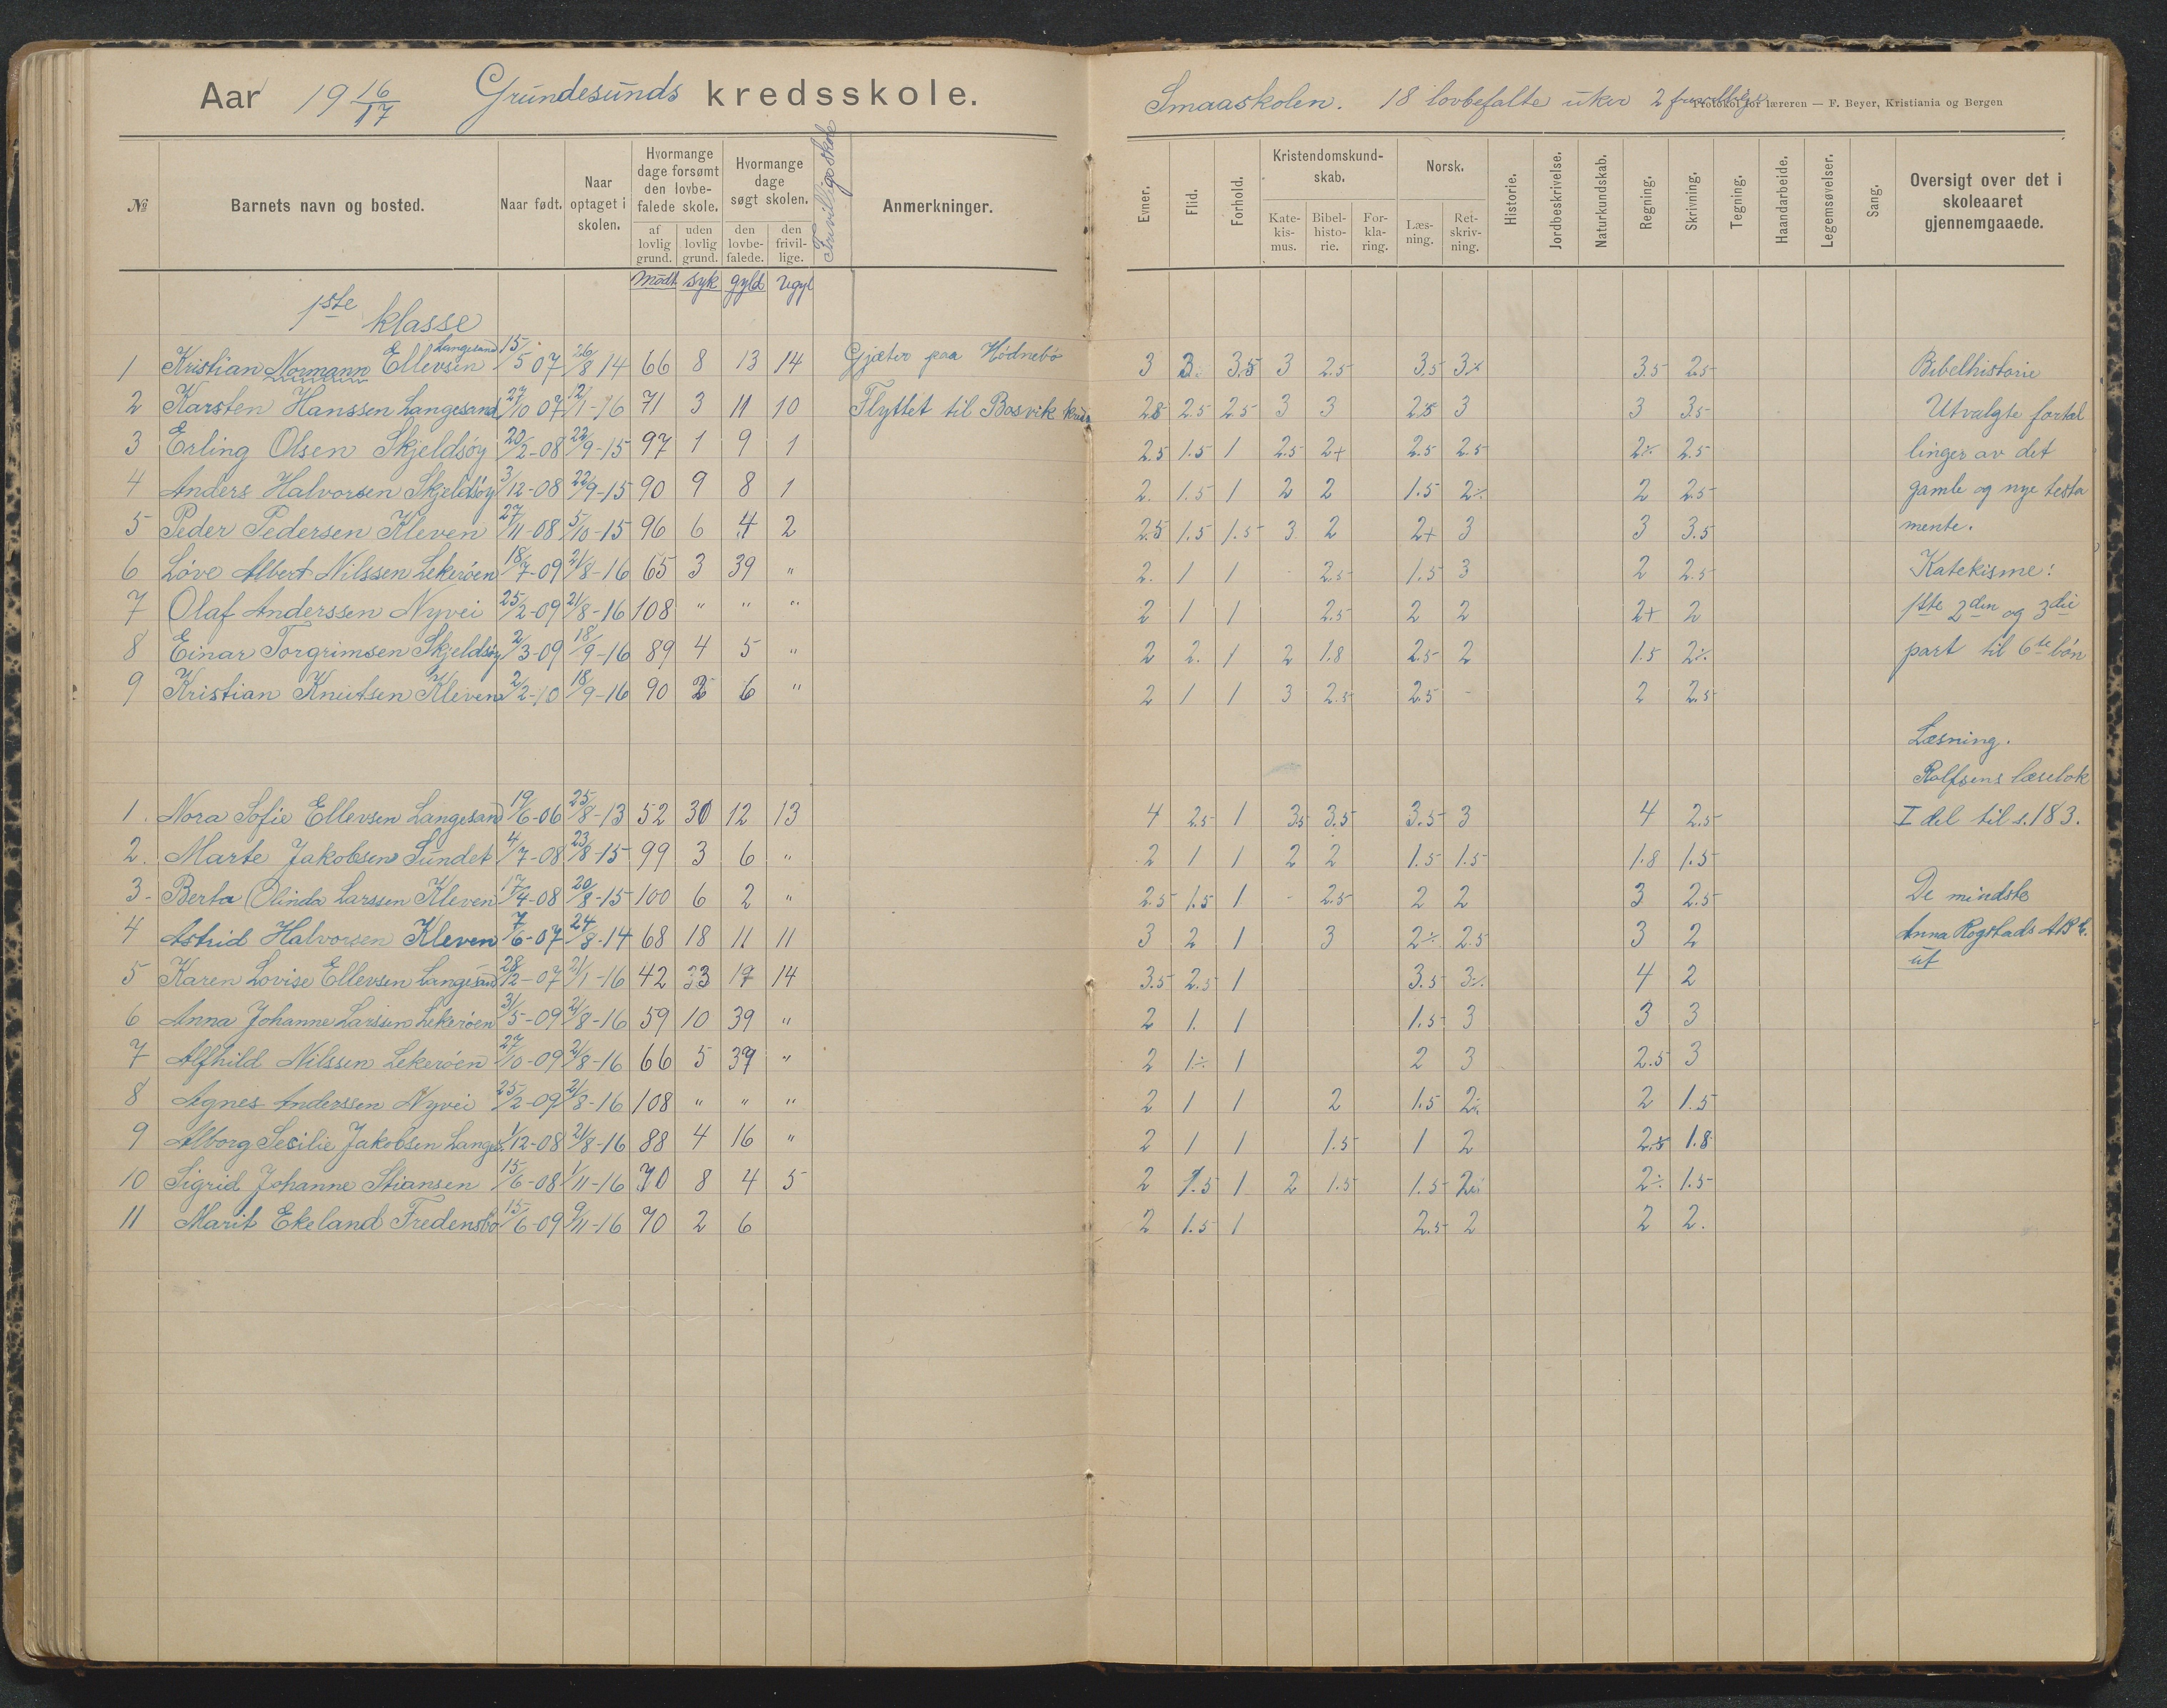 Aar 19 16/17 Grundesunds kredsskole.
№ Barnets navn og bosted. Naar født. Naar optaget i skolen. Hvormange dage forsømt den lovbefalede skole. af lovlig grund. uden lovlig grund. Hvormange dage søgt skolen. den lovbefalede. den frivillige. Frivillige skole Anmerkninger.
mødt syk gyld ugyl
1ste klasse
1 Kristian Normann Ellevsen Langesand 15/5 07 26/8 14 66 8 13 14 Gjæter paa Hødnebø
2 Karsten Hanssen Langesand 27/10 07 12/1-16 71 3 11 10 Flyttet til Bosvik
3 Erling Olsen Skjeldsøy 20/2-08 22/9-15 97 1 9 1
4 Anders Halvorsen Skjeldsøy 3/12-08 22/9-15 90 9 8 1
5 Peder Pedersen Kleven 27/11-08 5/10-15 96 6 4 2
6 Løve Albert Nilssen Lekerøen 18/7-09 21/8-16 65 3 39 "
7 Olaf Anderssen Nyvei 25/2-09 21/8-16 108 " " "
8 Einar Torgrimsen Skjeldsøy 2/3-09 18/9-16 89 4 5 "
9 Kristian Knutsen Kleven 2/2-10 18/9-16 90 2 6 "
1. Nora Sofie Ellevsen Langesand 19/6-06 25/8-13 52 30 12 13
2. Marte Jakobsen Sundet 4/7-08 23/8-15 99 3 6 "
3- Berta Olinda Larssen Kleven 17/4-08 20/8-15 100 6 2 "
4 Astrid Halvorsen Kleven 7/6-07 24/8-14 68 18 11 11
5 Karen Lovise Ellevsen Langesand 28/12-07 21/1-16 42 33 19 14
6 Anna Johanne Larssen Lekerøen 31/5-09 21/8-16 59 10 39 "
7 Alfhild Nilssen Lekerøen 27/10-09 21/8-16 66 5 37 "
8 Agnes Anderssen Nyvei 25/2-09 21/8-16 108 " " "
9 Alborg Sesilie Jakobsen Langes. 1/12-08 21/8-16 88 4 16 "
10 Sigrid Johanne Stiansen 15/6-08 1/11-16 70 8 4 5
11 Marit Ekeland Fredensbo 15/6-09 9/11-16 70 2 6
Smaaskolen. 18 lovbefalte uker 2 frivillige
Protokol for læreren — F. Beyer, Kristiania og Bergen
Evner. Flid. Forhold. Kristendomskundskab. Katekismus. Bibelhistorie. Forklaring. Norsk. Læsning. Retskrivning. Historie. Jordbeskrivelse. Naturkundskab. Regning. Skrivning. Tegning. Haandarbeide. Legemsøvelser. Sang. Oversigt over det i skoleaaret gjennemgaaede.
3 3. 3.5 3 2.5 3.5 3⁒ 3.5 2.5 Bibelhistorie
2.5 2.5 2.5 3 3 2.5 3 3 3.5 Utvalgte fortel
2.5 1.5 1 2.5 2+ 2.5 2.5 2⁒ 2.5 linger av det
2. 1.5 1 2 2 1.5 2⁒ 2 2.5 gamle og nye testa
2.5 1.5 1.5 3 2 2+ 3 3 3.5 mente.
2. 1 1 - 2.5 1.5 3 2 2.5 Katekisme:
2 1 1 2.5 2 2 2+ 2 1ste 2den og 3die
2 2. 1 2 1.8 2.5 2 1.5 2⁒ part til 6te bøn
2 1 1 3 2.5 2.5 - 2 2.5
Læsning.
Rolfsens læsebok
4 2.5 1 3.5 3.5 3.5 3 4 2.5 I del til s. 183.
2 1 1 2 2 1.5 1.5 1.8 1.5
2.5 1.5 1 - 2.5 2 2 3 2.5 De mindste
3 2 1 3 2⁒ 2.5 3 2 Anna Rogstads ABC.
ut
3.5 2.5 1 3.5 3⁒ 4 2
2 1. 1 1.5 3 3 3
2 1⁒ 1 2 3 2.5 3
2 1 1 2 1.5 2⁒ 2 1.5
2 1 1 1.5 1 2 2.5 1.8
2 1.5 1 2 1.5 1.5 2⁒ 2⁒ 1.5
2 1.5 1 2.5 2 2 2.